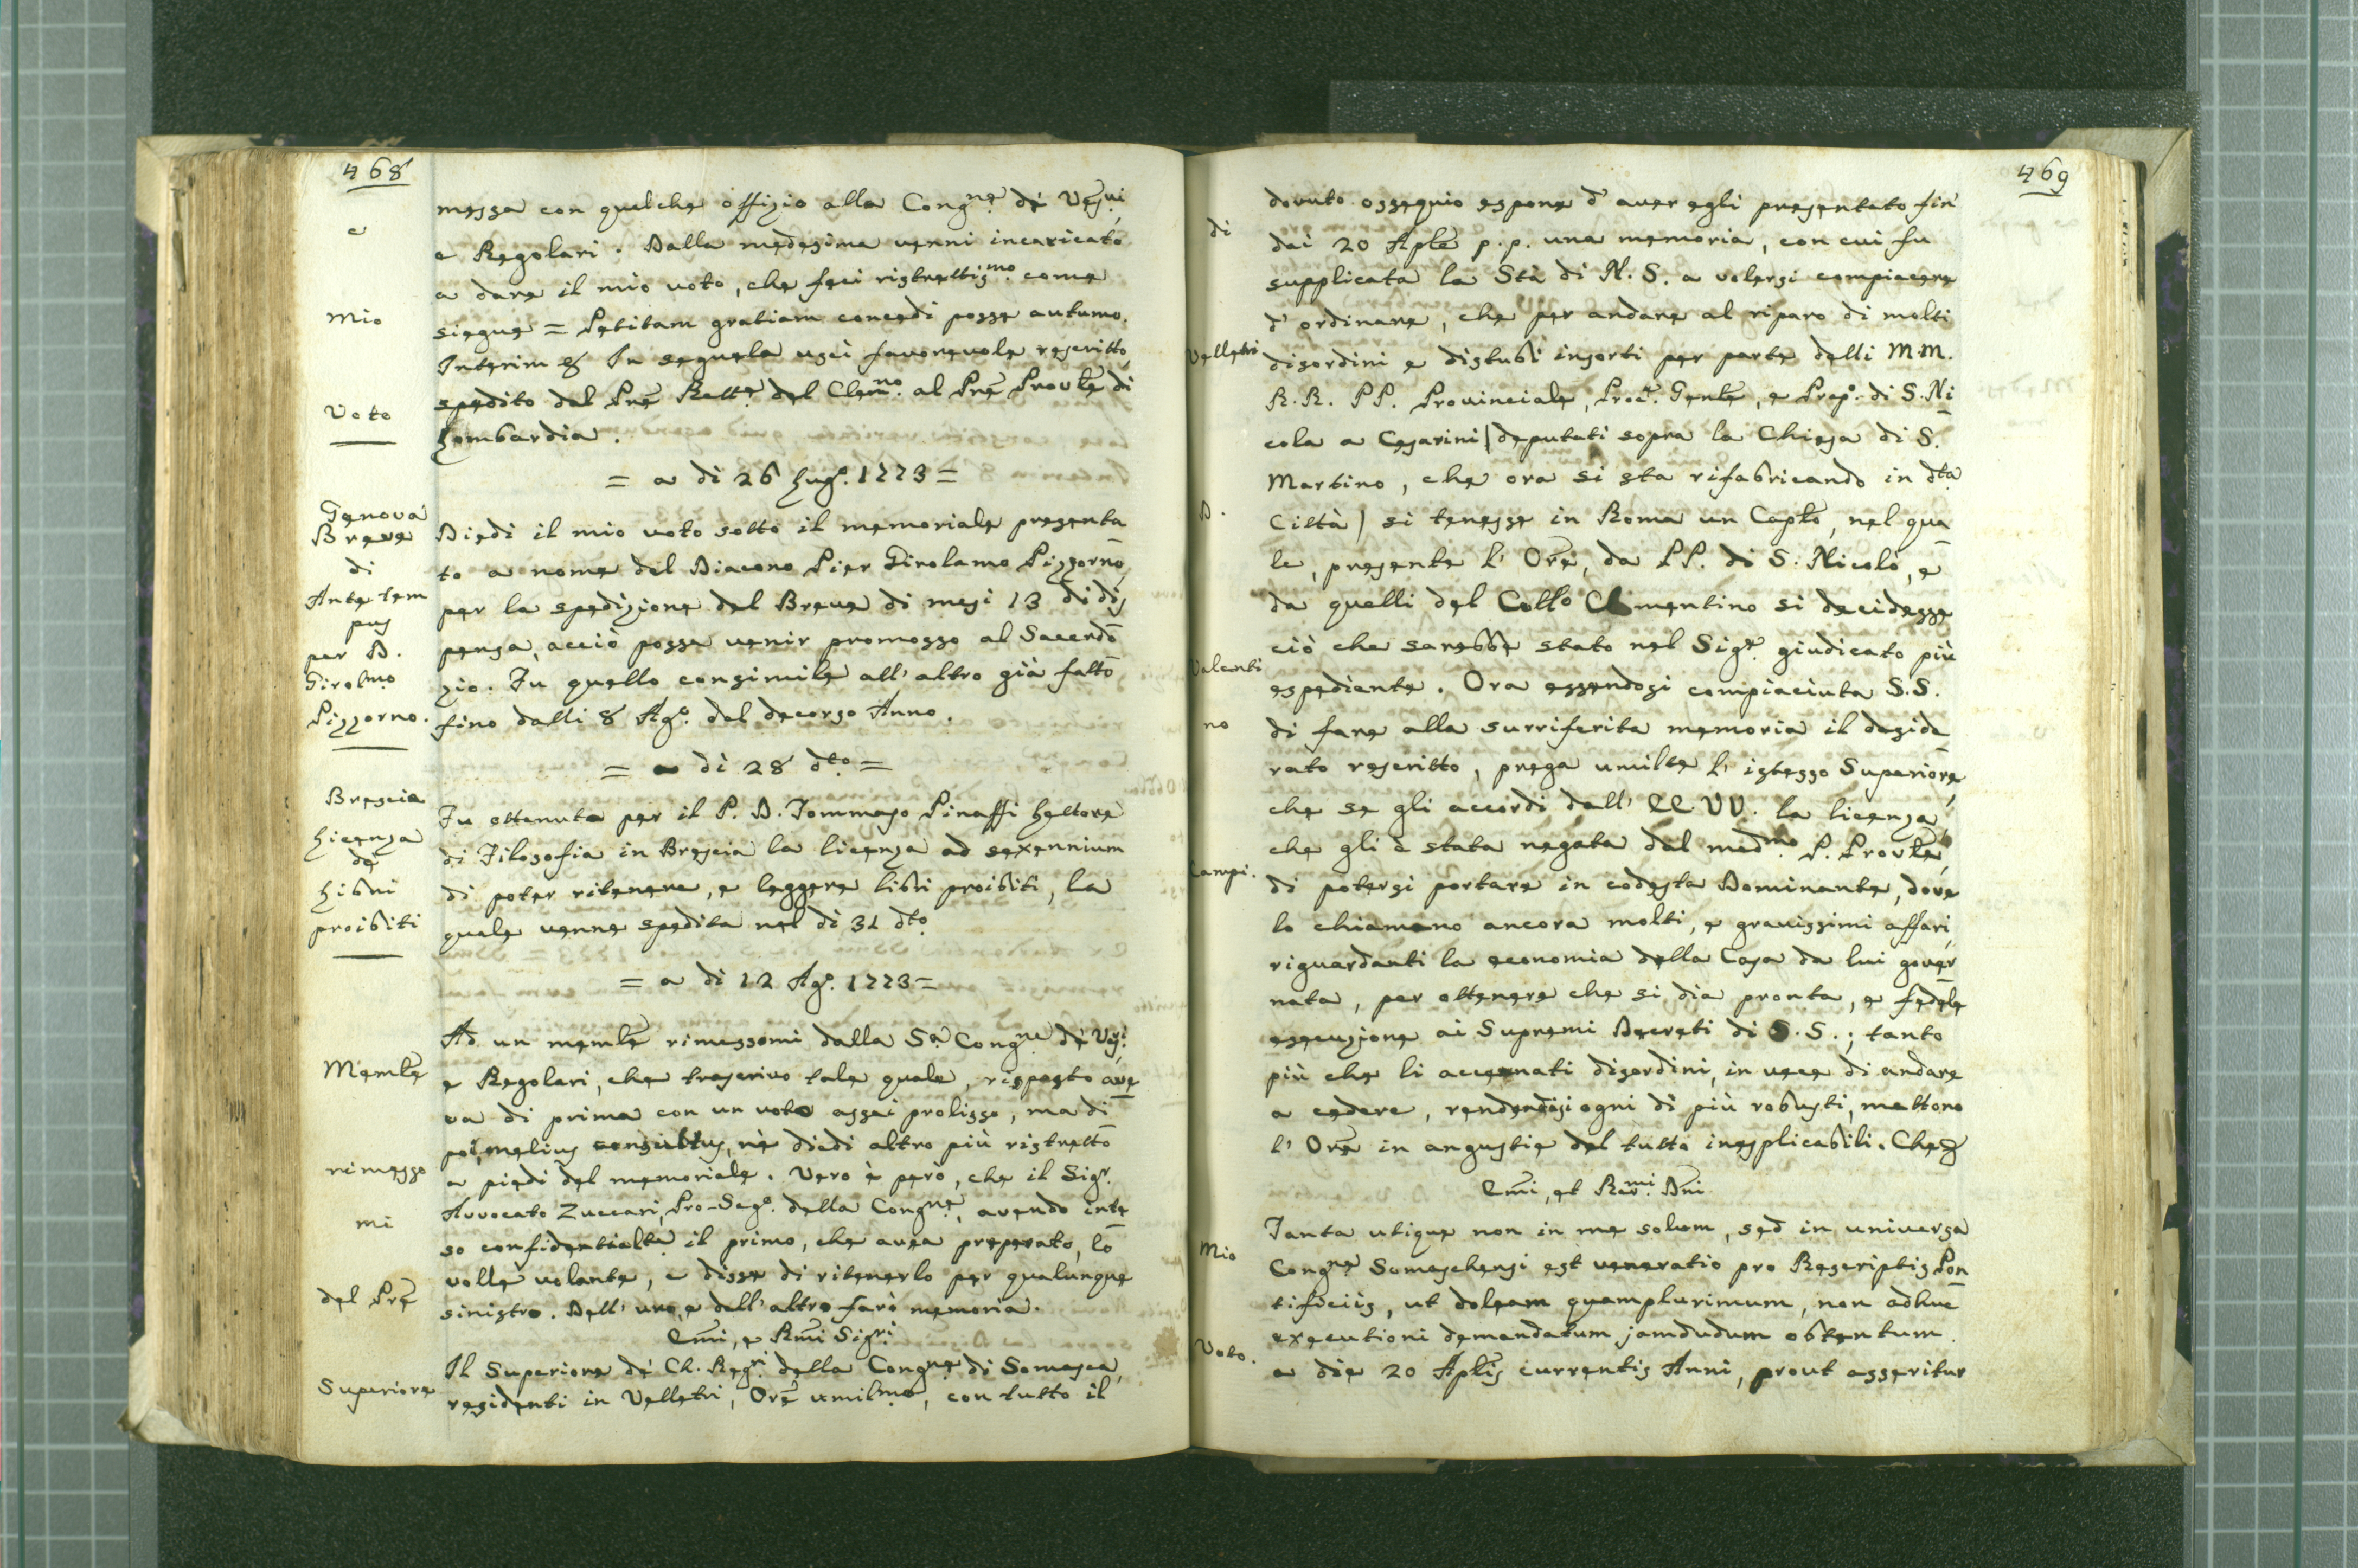 468
messa con qualche offizio alla Congne de Vesvi
e Regolari. Dalla medesima venni incaricato
a dare il mio voto, che feci ristrettismo come
siegue = Petitam gratiam concedi posse autumo.
Interim &. In sequela uscì favorevole rescritto
spedito dal Pre Rette del Clemno. al Pre Provle di
Lombardia.
e
mio
Voto
= a dì 26 Lugo. 1773 =
Diedi il mio voto sotto il memoriale presenta
to a nome del Diacono Pier Girolamo Pizzorno
per la spedizione del Breve di mesi 13 di dis
pensa, acciò possa venir promosso al Sacerdo
zio. Fu quello consimile all' altro già fatto
fino dalli 8 Ago. del decorso Anno.
Genova
Breve
di
Ante tem
pus
per D.
Girolmo
Pizzorno.
= a dì 28 dto =
Fu ottenuta per il P. D. Tommaso Pinaffi Lettore
di Filosofia in Brescia la licenza ad sexennium
di poter ritenere, e leggere libri proibiti, la
quale venne spedita nel dì 31 dto
Brescia
Licenza
de
Libri
proibiti
= a dì 12 Ago. 1773 =
Ad un memle rimessomi dalla Sa Congne de Vvi.
e Regolari, che trascrivo tale quale, risposto ave
va di prima con un voto assai prolisso, ma di
poi, melius consultus, nè diedi altro più ristretto
a piedi del memoriale. Vero è però, che il Sigr.
Avvocato Zuccari, Pro-Sego. della Congne, avendo inte
so confidentialte il primo, che avea preparato, lo
volle volante, e disse di ritenerlo per qualunque
sinistro. Dell' uno, e dell' altro farò memoria.
Emi, e Rmi Sigri
Il Superiore de Ch. Regri della Congne di Somasca,
residenti in Velletri, Ore umilmo, con tutto il
Memle
rimesso
mi
del Pre
Superiore
469
dovuto ossequio espone d' aver egli presentato fin
dai 20 Aple p.p. una memoria, con cui fu
supplicata la Stà di N. S. a volersi compiacere
d' ordinare, che per andare al riparo di molti
disordini e distubi insorti per parte delli M.M.
R.R. PP. Provinciale, Proc. Genle, e Prepo. di S. Ni
cola a Cesarini | deputati sopra la Chiesa di S.
Martino, che ora si sta rifabricando in dta
Città | si tenesse in Roma un Caplo, nel qua
le, presente l' Ore, da PP. di S. Nicolò, e
da quelli del Collo Clementino si decidesse
ciò che sarebbe stato nel Sige. giudicato più
espediente. Ora essendosi compiaciuta S.S.
di fare alla surriferita memoria il deside
rato rescritto, prega umilte l' istesso Superiore
che se gli accordi dall' EE VV. la licenza,
che gli è stata negata dal medmo P. Provle,
di potersi portare in codesta Dominante, dove
lo chiamano ancora molti, e gravissimi affari,
riguardanti la economia della Casa da lui gover
nata, per ottenere che si dia pronta, e fedele
esecuzione ai Supremi Decreti di S.S.; tanto
più che li accennati disordini, in vece di andare
a cedere, rendendosi ogni dì più robusti, mettono
l' Ore in angustie del tutto inesplicabili. Che&
Emi, et Revmi. Dni
Tanta utique non in me solum, sed in universa
Congne Somaschensi est veneratio pro Rescriptis Pon
tificiis, ut doleam quamplurimum, non adhuc
executioni demandatum jamdudum obtentum
a die 20 Aplis currentis Anni, prout asseritur
di
Velletri
D.
Valenti
no
Campi.
Mio
Voto.